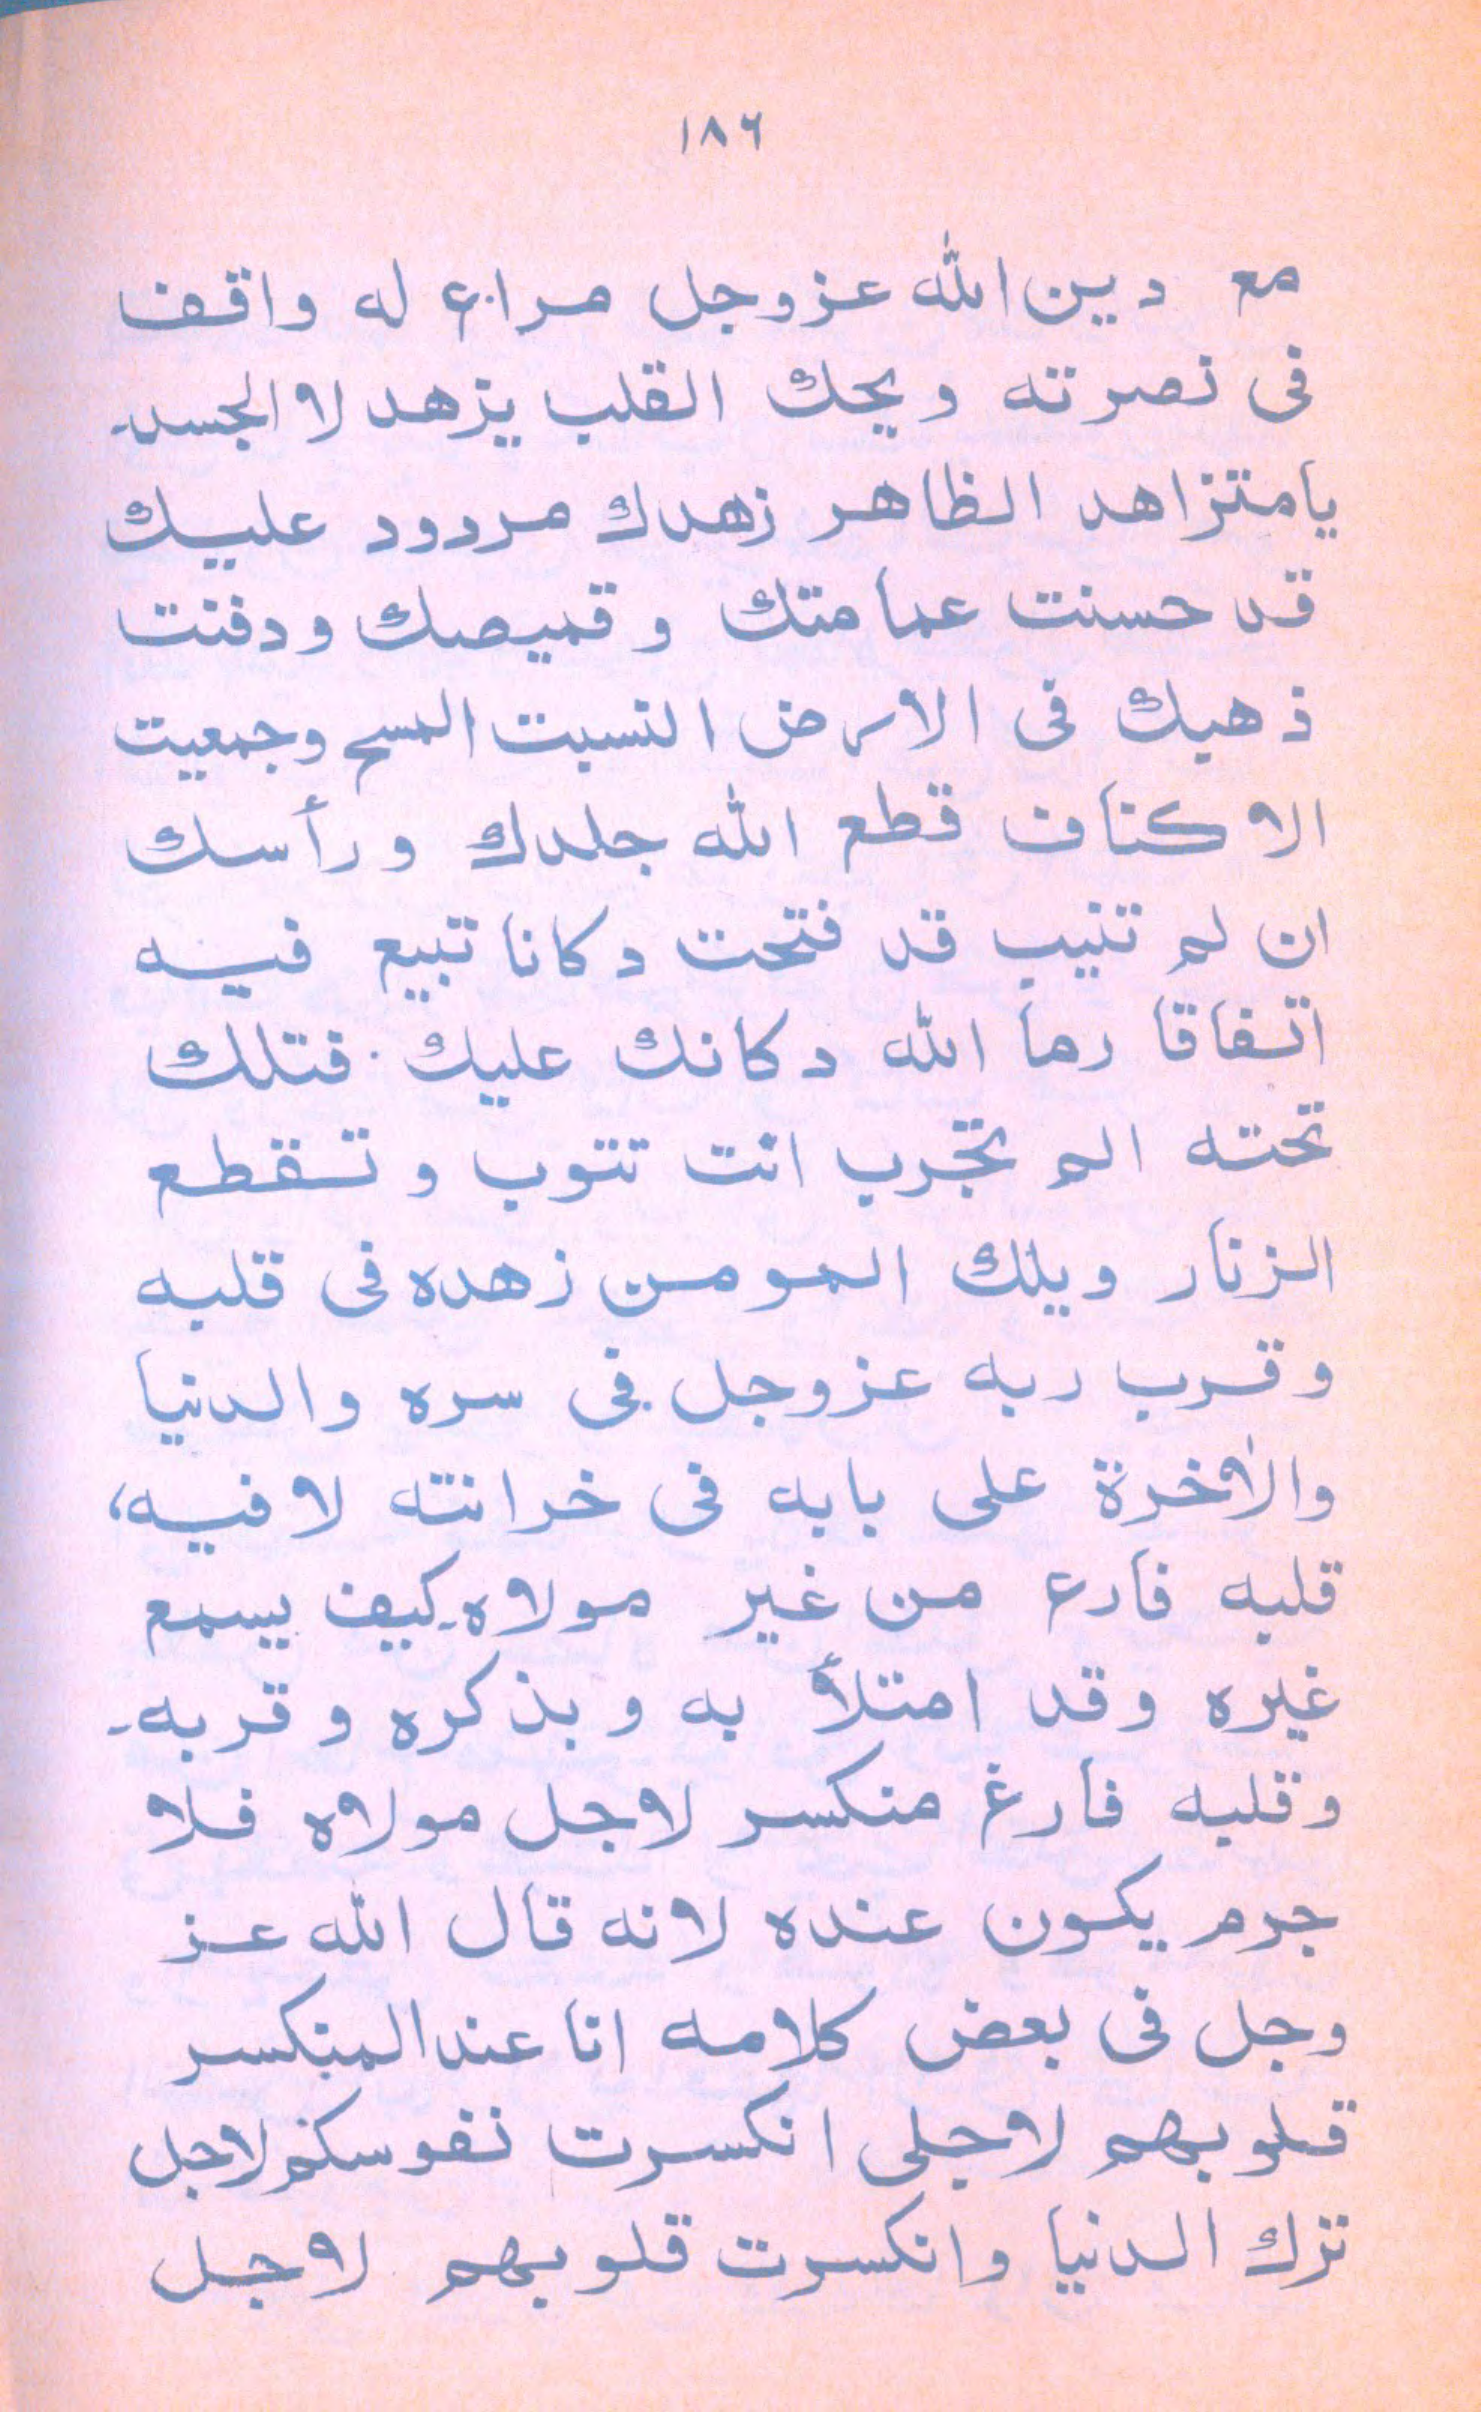 ١٨٦
مع دين الله عزوجل مراع له واقف
فى نصرته ويحك القلب يزهد لا الجسد۔
يا متزاهد الظاهر زهدك مردود عليك
قد حسنت عمامتك وقميصك ودفنت
ذهبك فى الارض النسبت المسح وجمعيت
الاكناف قطع الله جلدك ورأسك
ان لم تنيب قد فتحت دكانا تبيع فيه
اتفاقا رما الله دكانك عليك. فتلك
تحته الم تجرب انت تتوب وتقطع
الزنار ويلك المومن زهده فى قلبه
وقرب ربه عزوجل فى سره والدنيا
والأخرة على بابه فى خرانته لا فيه،
قلبه فارع من غير مولاه۔ كيف يسمع
غيره وقد امتلأ به وبذكره وقربه۔
وقلبه فارغ منكسر لاجل مولاه فلا
جرم يكون عنده لانه قال الله عز
وجل فى بعض كلامه انا عند المنكسر
قلوبهم لاجلى انكسرت نفوسكم لاجل
ترك الدنيا وانكسرت قلوبهم لاجل